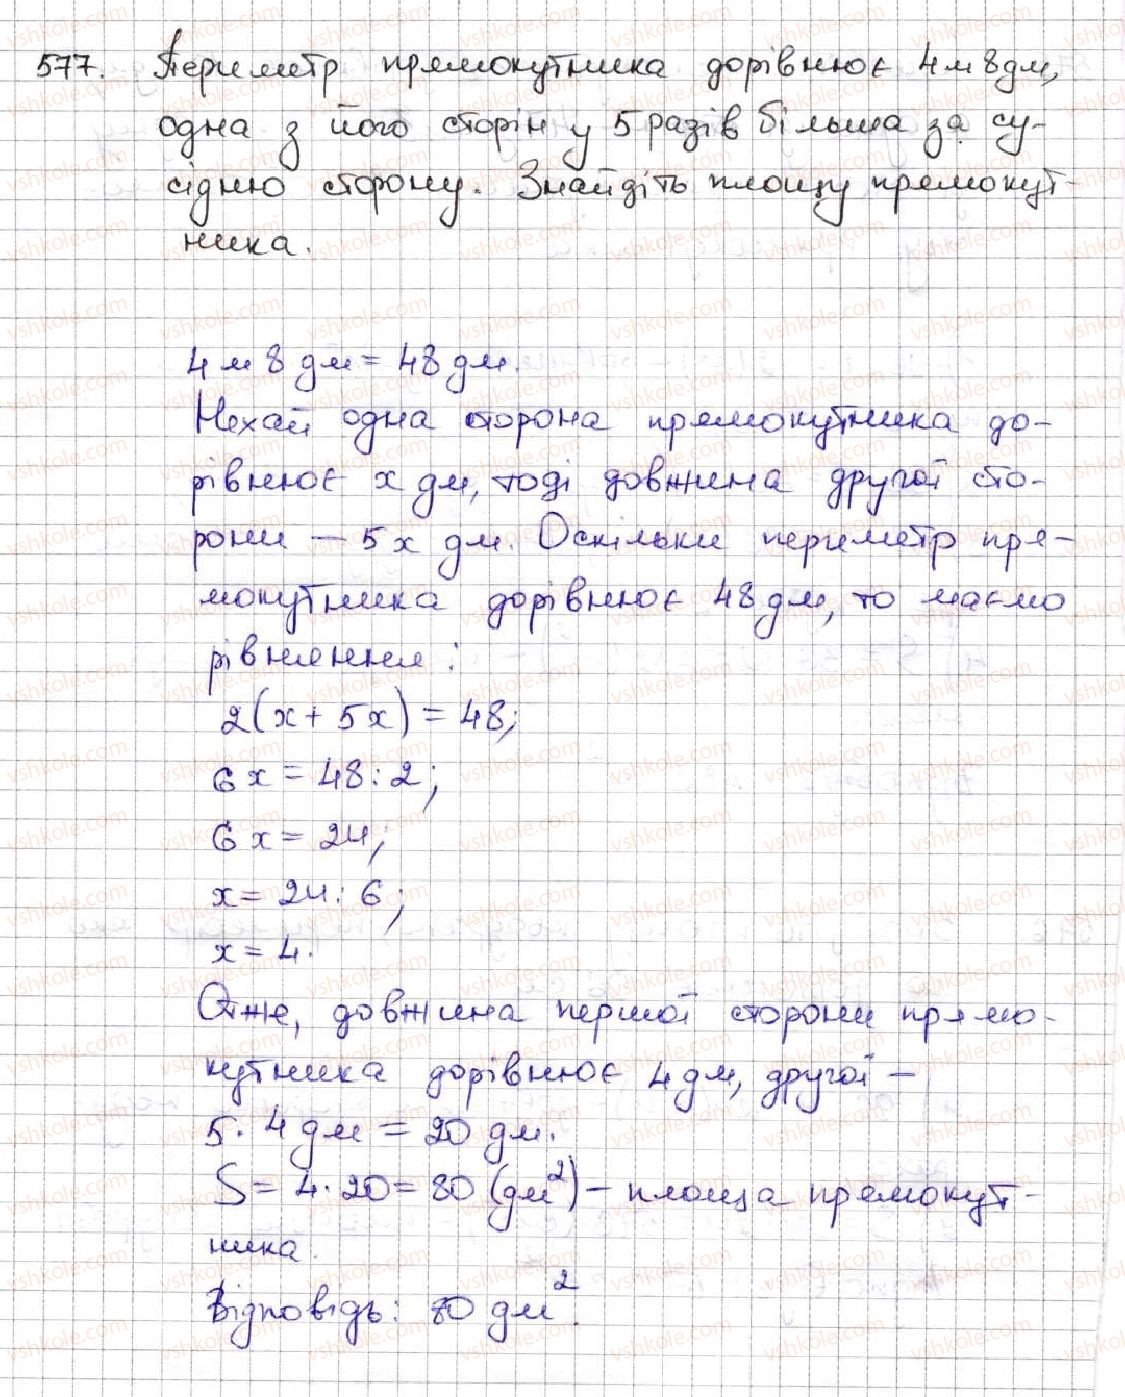 577. Периметр прямокутника дорівнює 4 м 8 дм,
одна з його сторін у 5 разів більша за су-
сідню сторону. Знайдіть площу прямокут-
ника.
4 м 8 дм = 48 дм.
Нехай одна сторона прямокутника до-
рівнює x дм, тоді довжина другої сто-
рони – 5x дм. Оскільки периметр пря-
мокутника дорівнює 48 дм, то маємо
рівняння:
2(x + 5x) = 48;
6x = 48 : 2;
6x = 24;
x = 24 : 6;
x = 4.
Отже, довжина першої сторони прямо-
кутника дорівнює 4 дм, другої –
5 · 4 дм = 20 дм.
S = 4 · 20 = 80 (дм²) – площа прямокут-
ника.
Відповідь: 80 дм².